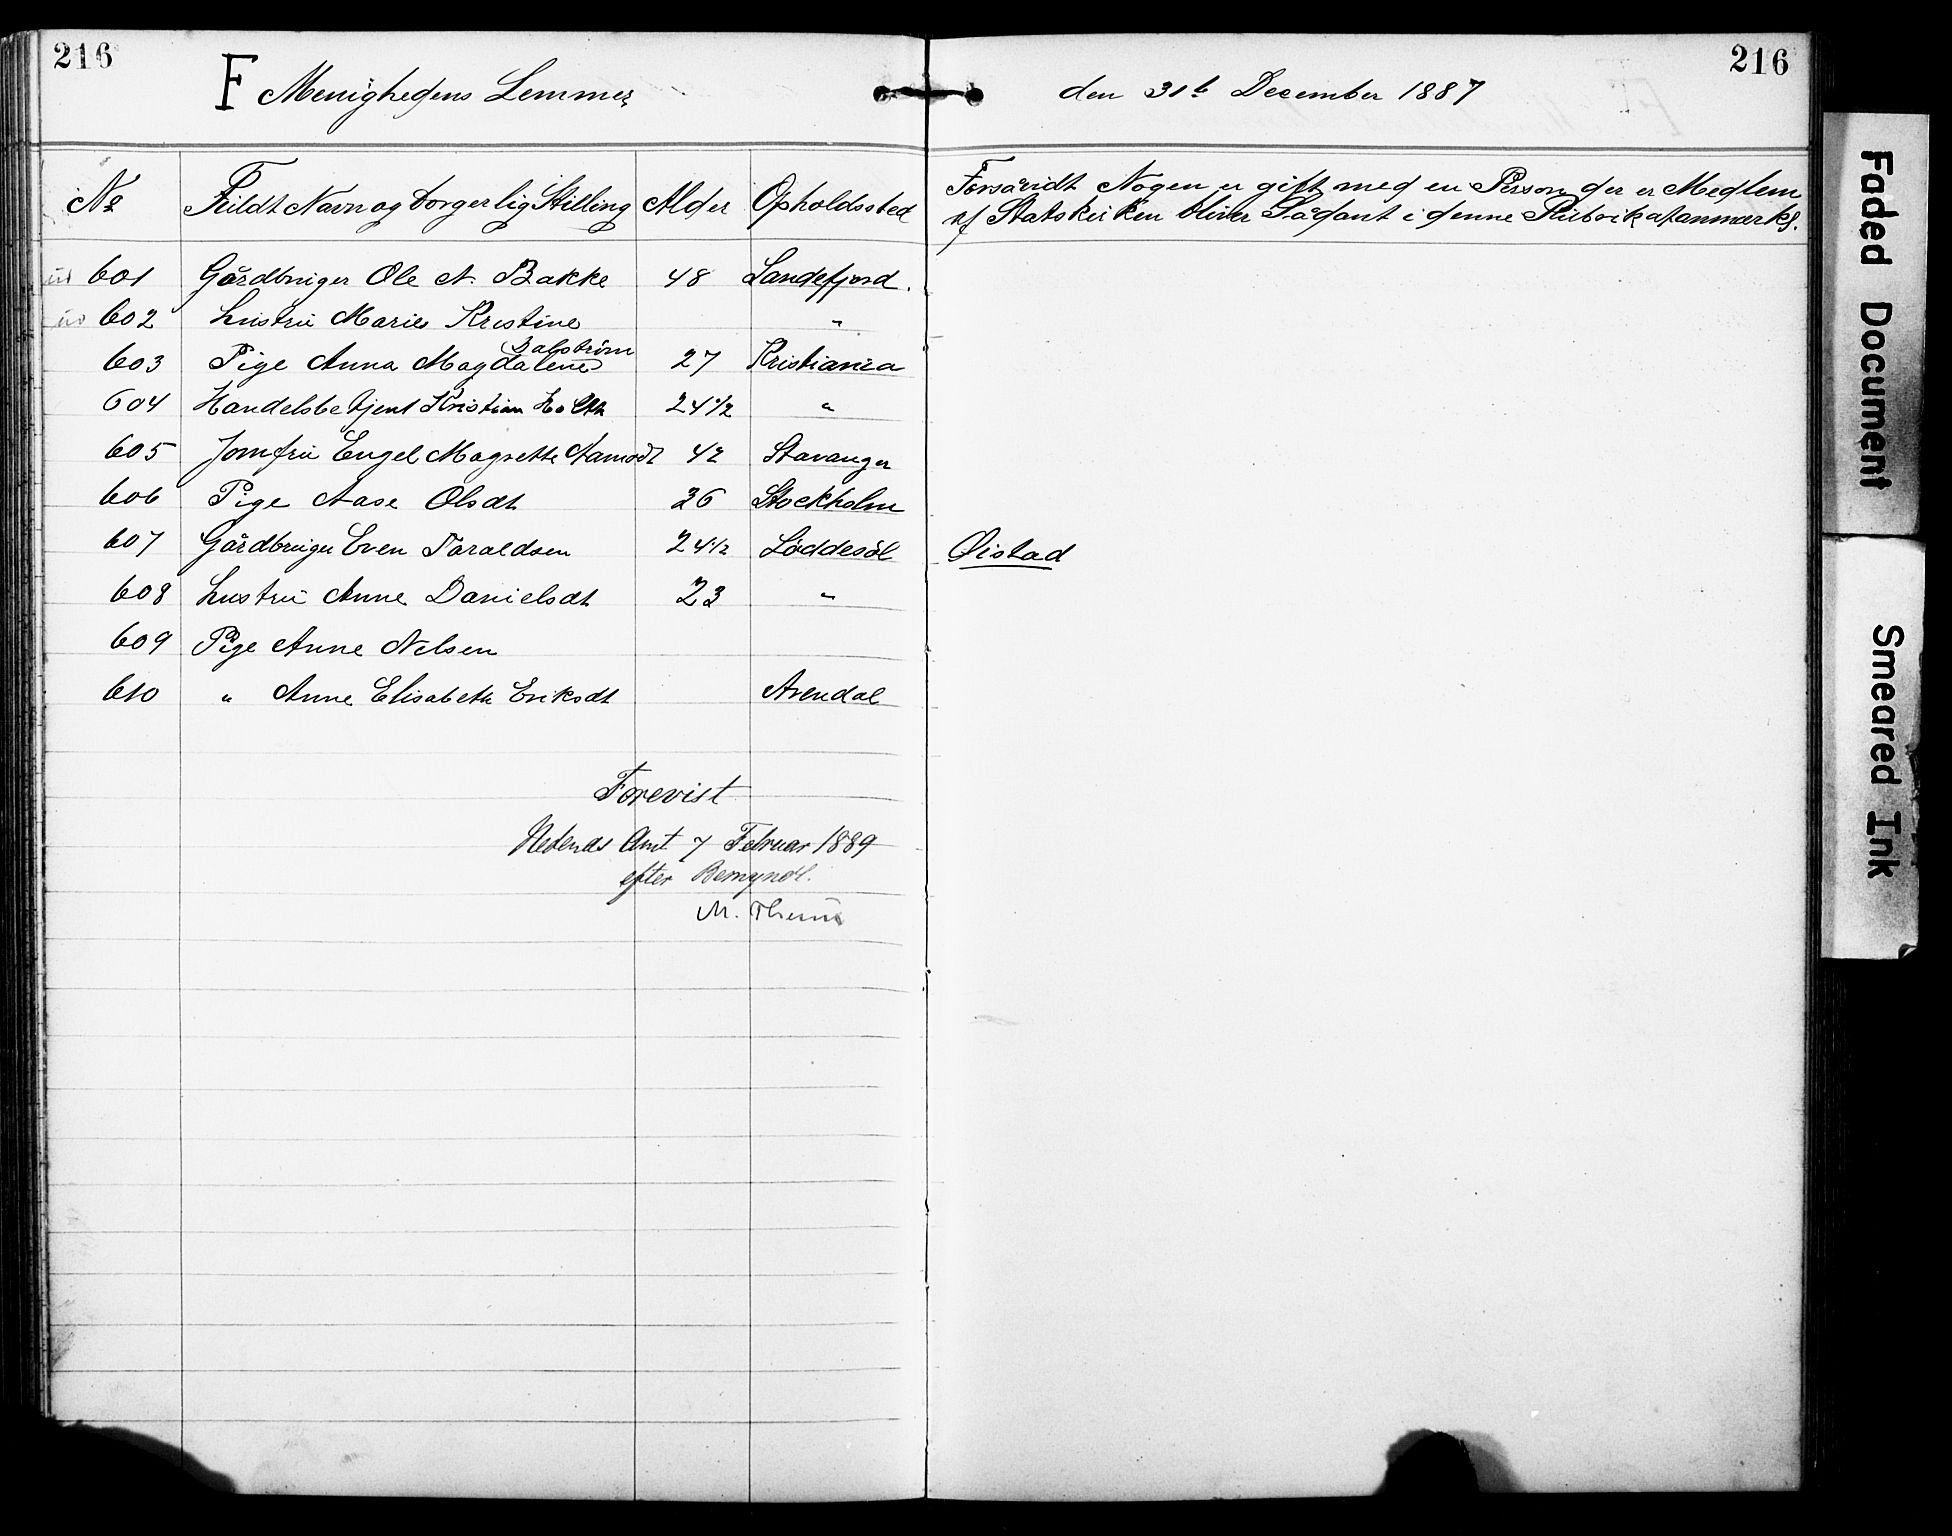 216
F Menighedens Lemmer
No Fuldt Navn og borgerlig Stilling Alder Opholdssted
ud 601 Gårdbruger Ole N. Bakke 48 Sandefjord.
ud 602 hustru Marie Kristine "
603 Pige Anna Magdalene Dalström 27 Kristiania
604 Handelsbetjent Kristian Holth 24 1/2 "
605 Jomfru Engel Magrethe Aamodt 42 Stavanger
606 Pige Aase Olsdt 36 Stockholm
607 Gårdbruger Even Taraldsen 24 1/2 Løddesøl
608 hustru Anne Danielsdt 23 "
609 Pige Anne Nelsen
610 " Anne Elisabeth Eriksdt Arendal
Forevist
Nedenes Amt 7 Februar 1889
efter Bemyndl.
M.
216
den 31te December 1887
Forsåvidt Nogen er gift med en Person der er Medlem
af Statskirken bliver Sådant i denne Rubrik at anmærks.
Øistad
Faded Document
Smeared Ink